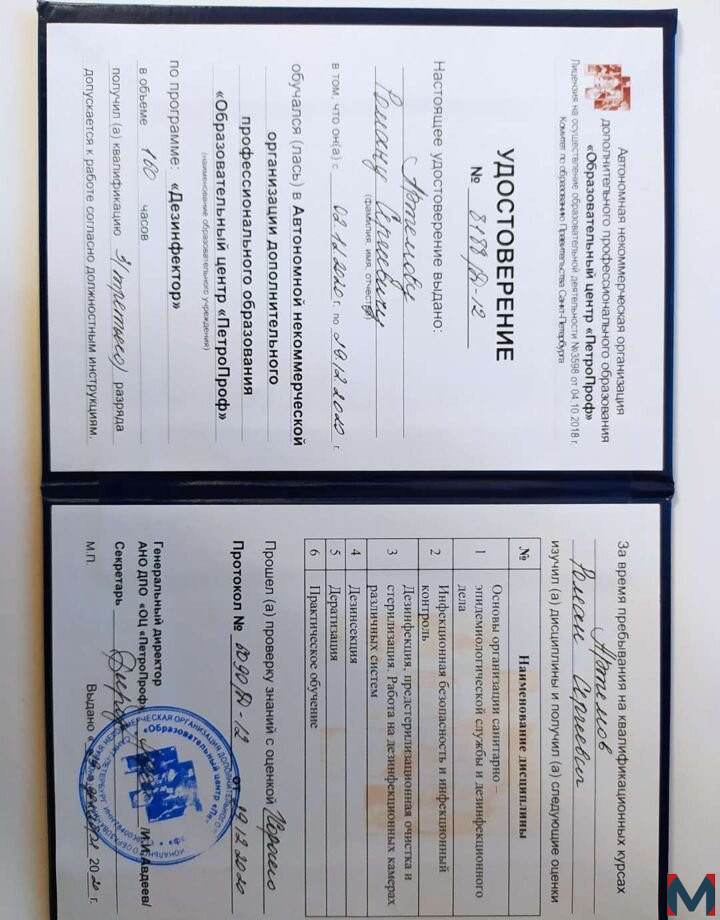 Автономная некоммерческая организация
дополнительного профессионального образования
«Образовательный центр «ПетроПроф»
Лицензия на осуществление образовательной деятельности №3598 от 04.10.2018 г.
Комитет по образованию Правительства Санкт-Петербурга
УДОСТОВЕРЕНИЕ
№ 8189/Д-12
Настоящее удостоверение выдано:
Артемову
Роману Сергеевичу
(фамилия, имя, отчество)
в том, что он(а) с 02.12.2020 г. по 19.12.2020 г.
обучался (лась) в Автономной некоммерческой
организации дополнительного
профессионального образования
«Образовательный центр «ПетроПроф»
(наименование образовательного учреждения)
по программе: «Дезинфектор»
в объеме 100 часов
получил (а) квалификацию 3/третьего/ разряда
допускается к работе согласно должностным инструкциям.
За время пребывания на квалификационных курсах
Артемов
Роман Сергеевич
изучил (а) дисциплины и получил (а) следующие оценки
№ Наименование дисциплины
1 Основы организации санитарно –
эпидемиологической службы и дезинфекционного
дела
2 Инфекционная безопасность и инфекционный
контроль
3 Дезинфекция, предстерилизационная очистка и
стерилизация. Работа на дезинфекционных камерах
различных систем
4 Дезинсекция
5 Дератизация
6 Практическое обучение
Прошел (а) проверку знаний с оценкой Хорошо
Протокол № 8090/Д-12 от 19.12.2020
Генеральный директор
АНО ДПО «ОЦ «ПетроПроф» /М.И. Авдеев/
Секретарь
М.П. Выдано « 19 » декабря 2020 г.
«Образовательный центр
M